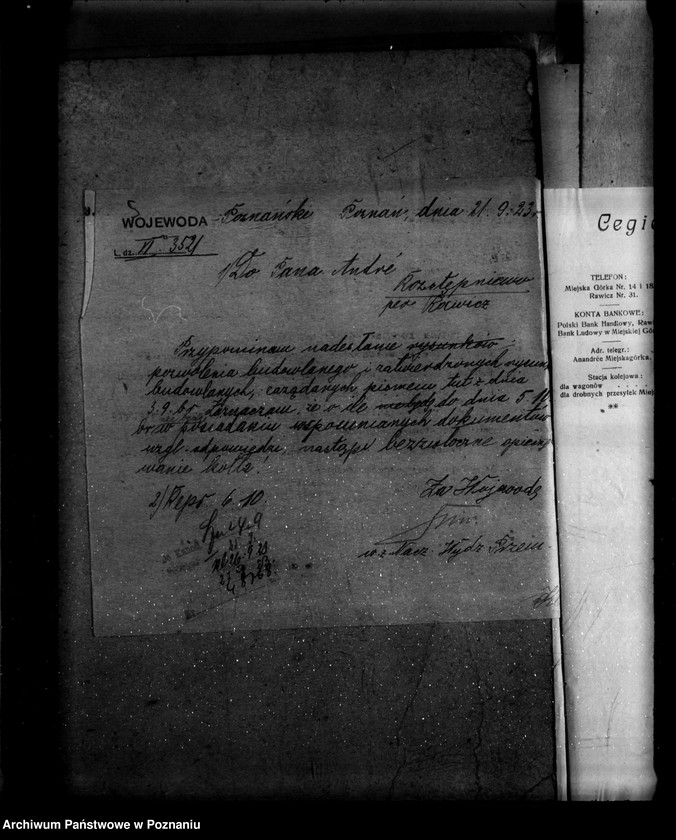 WOJEWODA Poznański Poznań, dnia 21. 9. 23 r.
L. dz. VI. 3521
1/ Do Pana André
Rozstępniewo
per Rawicz
Przypominam nadesłanie rysunków
pozwolenia budowlanego i zatwierdzonych rysun.
budowlanych, zażądanych pismem tut. z dnia
3. 9. br. Zaznaczam, że o ile do dnia 5. 10.
br. w posiadaniu wspomnianych dokumentów
wzgl. odpowiedzi, nastąpi bezzwłoczne opieczę-
wanie kotła.
2) Repr. 6. 10.
Za Wojewodę
w z. Nacz. Wydz. Przem.
Cegie
TELEFON:
Miejska Górka Nr. 14 i 18
Rawicz Nr. 31.
KONTA BANKOWE:
Polski Bank Handlowy, Raw
Bank Ludowy w Miejskiej Gó
Adr. telegr.:
Anandréc Miejskagórka,
Stacja kolejowa:
dla wagonów . . . .
dla drobnych przesyłek Miej
Archiwum Państwowe w Poznaniu